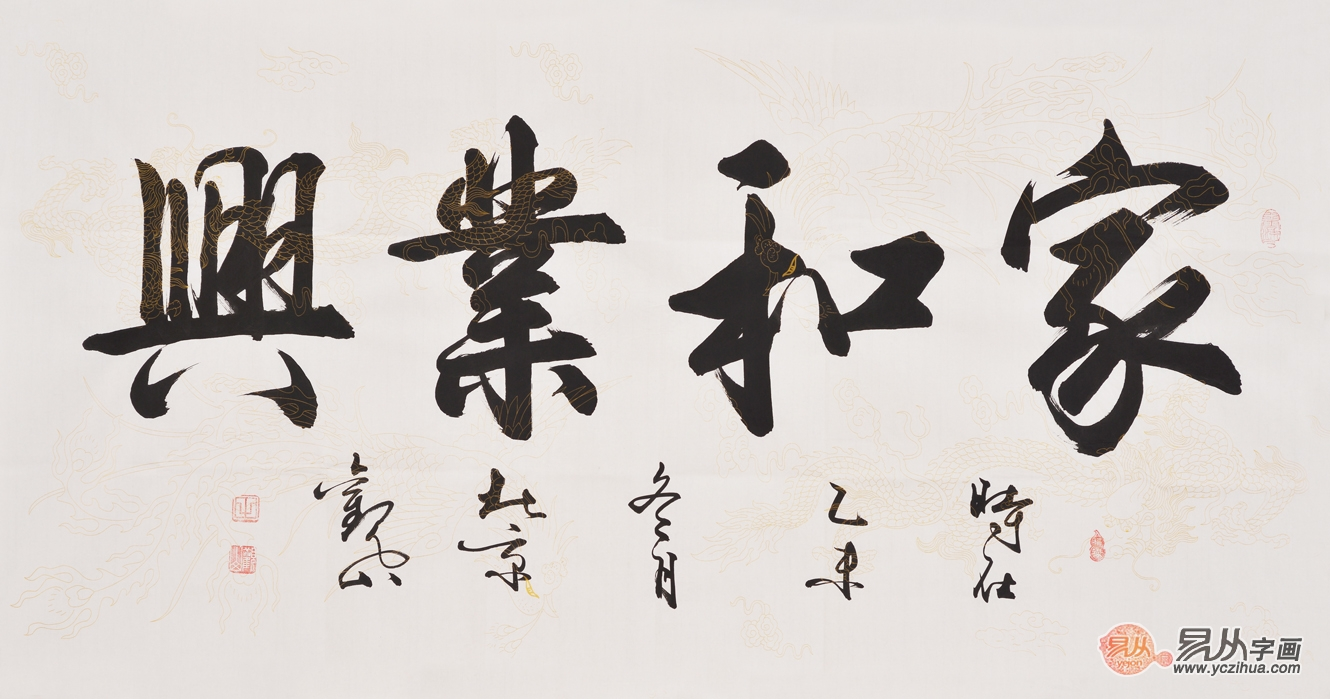 家和業興
時在
乙未
冬月
北京
觀山
易从
易从字画
www.yczihua.com